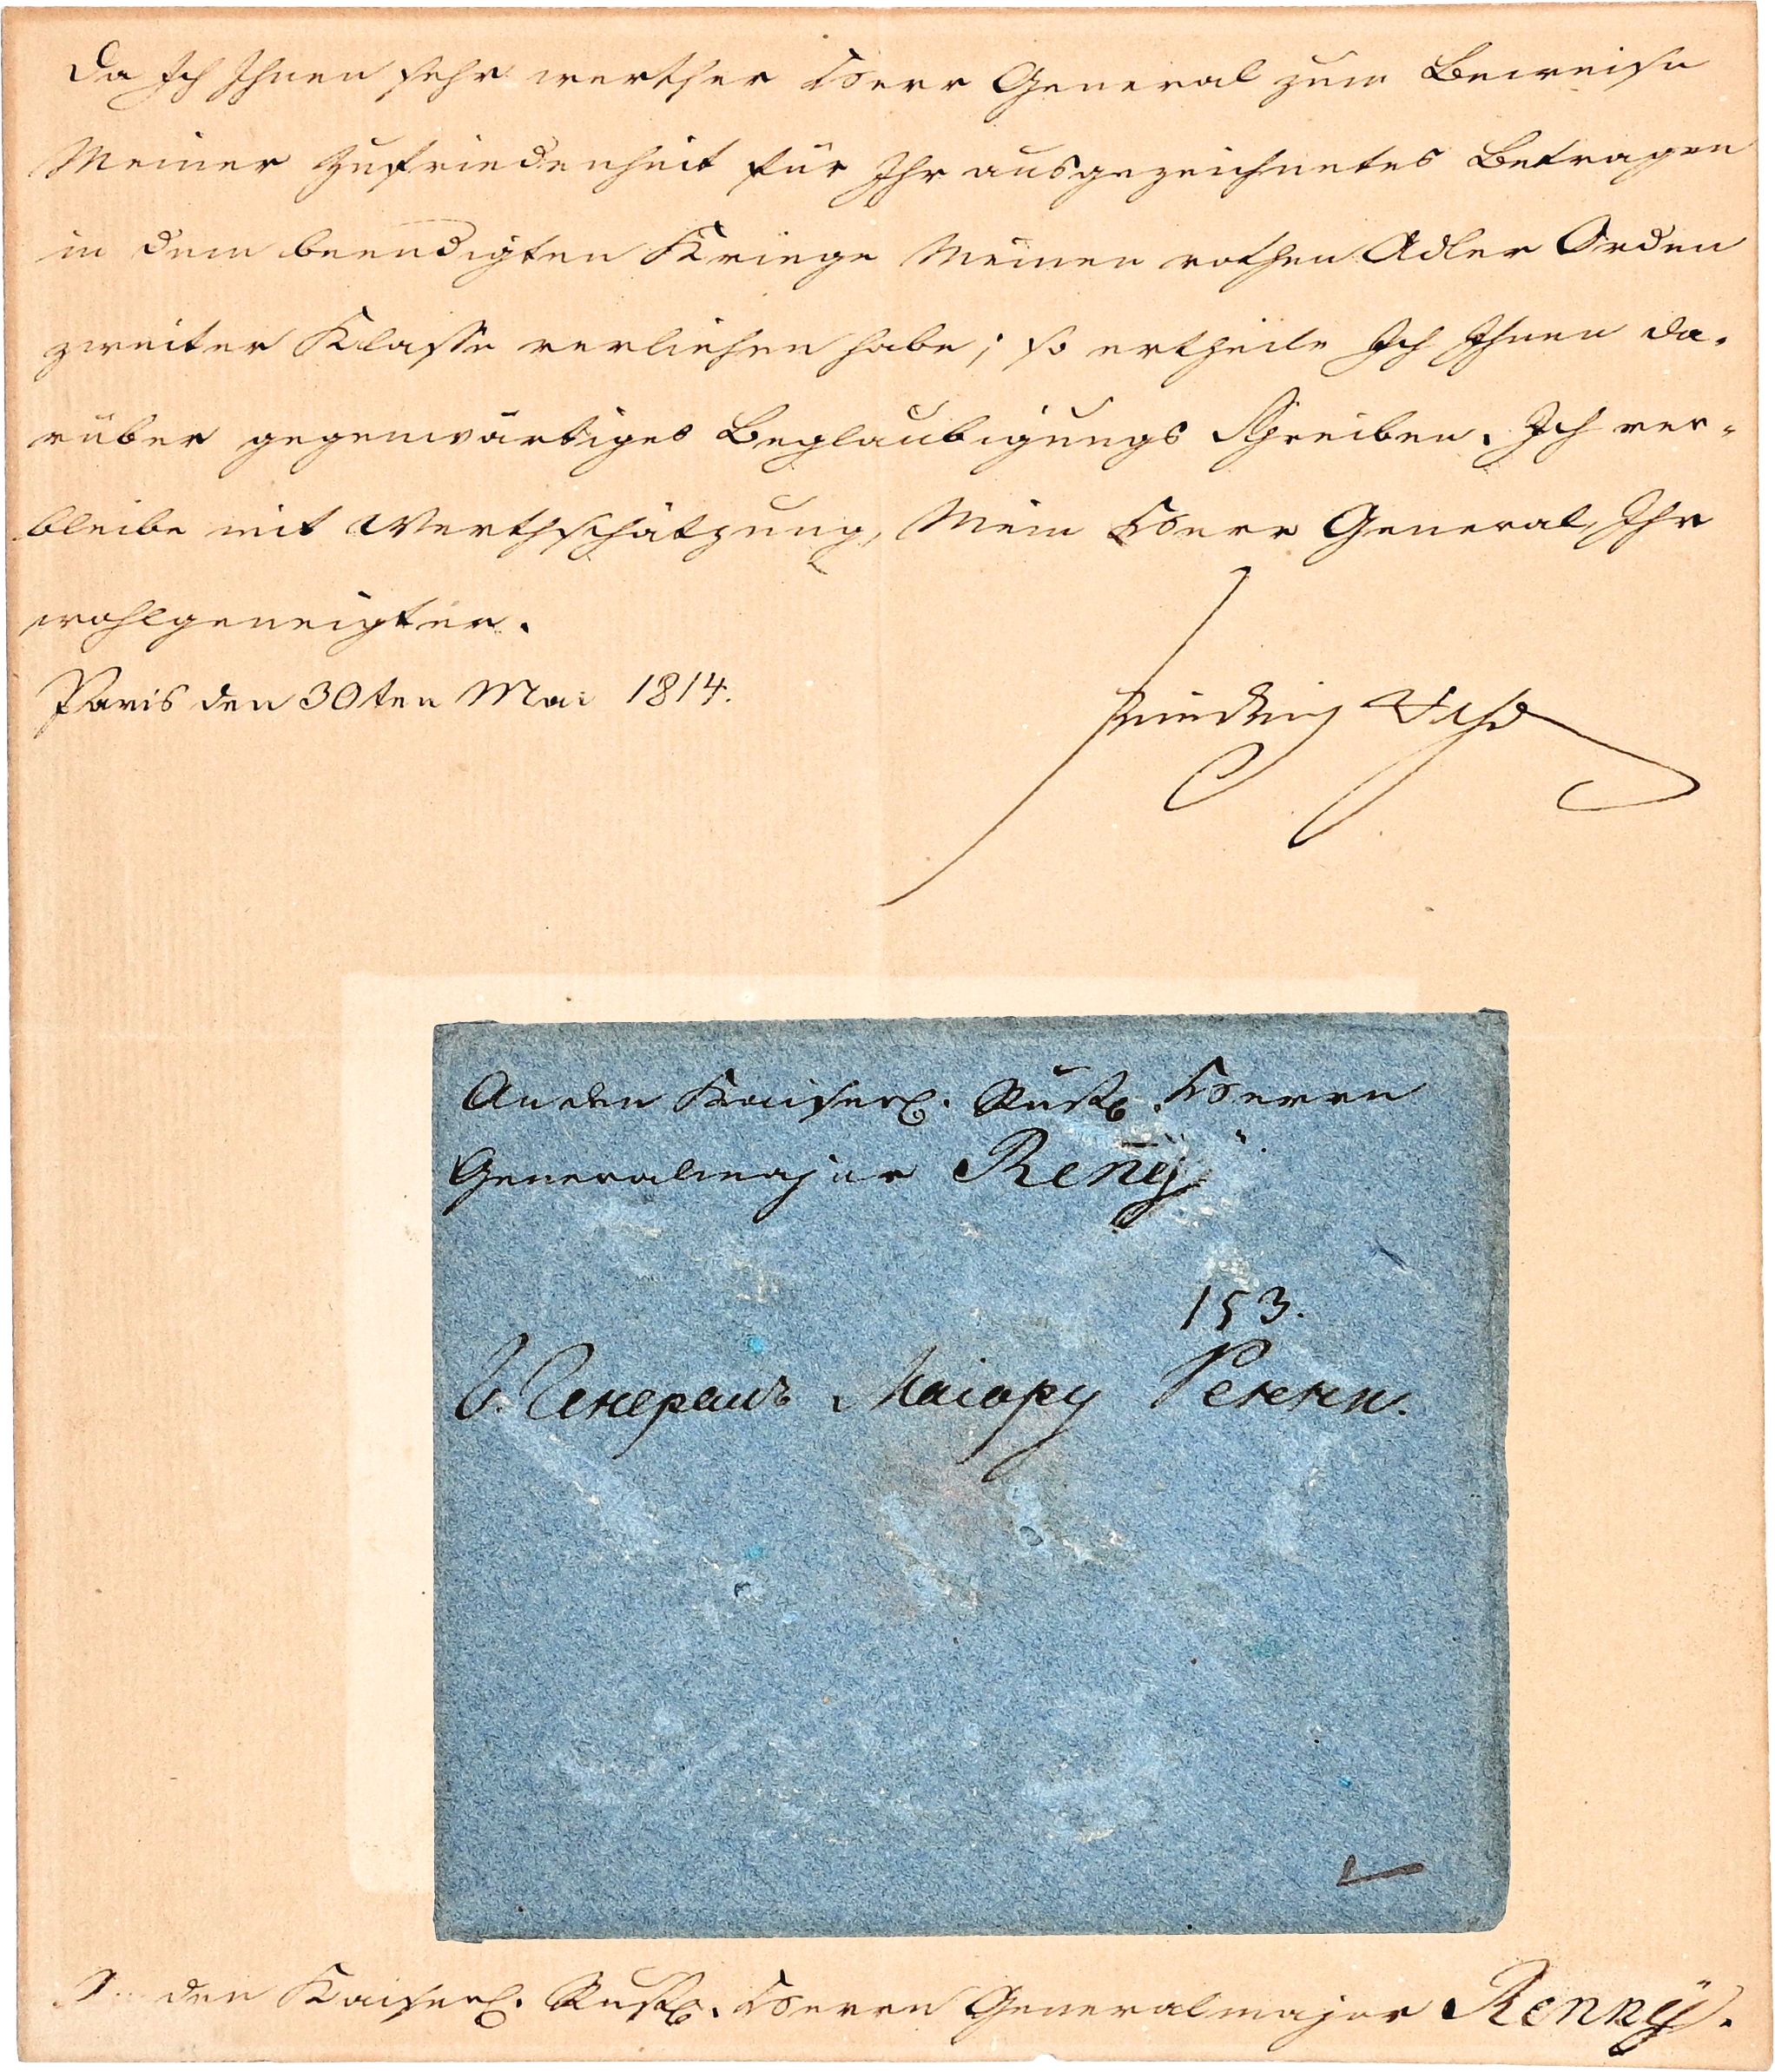 Da Ich Ihnen sehr werther Herr General zum Beweise
Meiner Zufriedenheit für Ihr ausgezeichnetes Betragen
in dem beendigten Kriege Meinen rothen Adler Orden
zweiter Klasse verliehen habe; so ertheile Ich Ihnen da-
rüber gegenwärtiges Beglaubigungs Schreiben. Ich ver-
bleibe mit Werthschätzung, Mein Herr General, Ihr
wohlgeneigter.
Paris den 30ten Mai 1814.
Friedrich Wilh
An den Kaiserl. Russ. Herrn
Generalmajor Renÿ
153.
Г. Генералъ Маіору Ренни.
An den Kaiserl. Russ. Herrn Generalmajor Rennÿ.